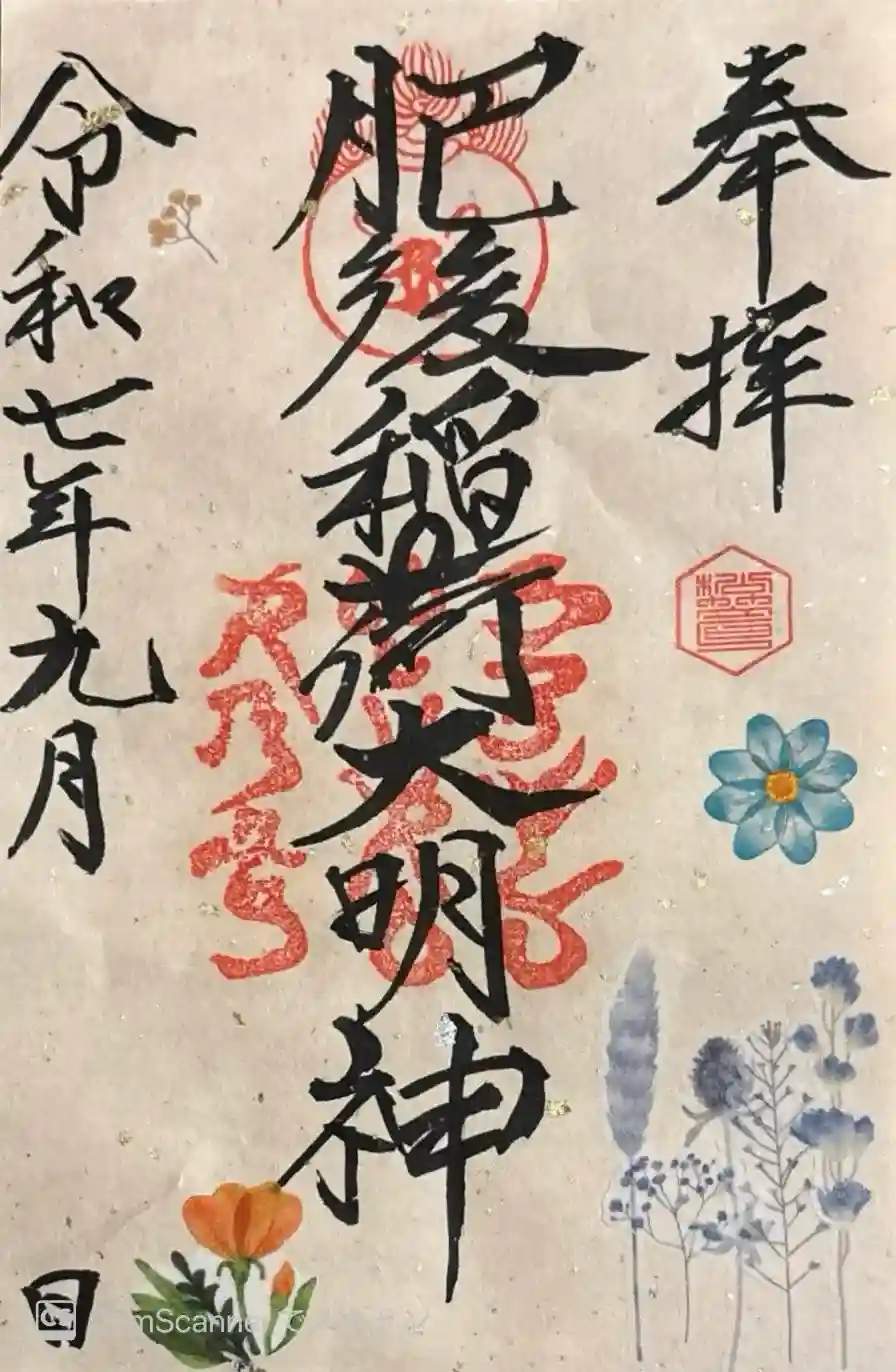 奉拝
肥後稲荷大明神
令和七年九月
日